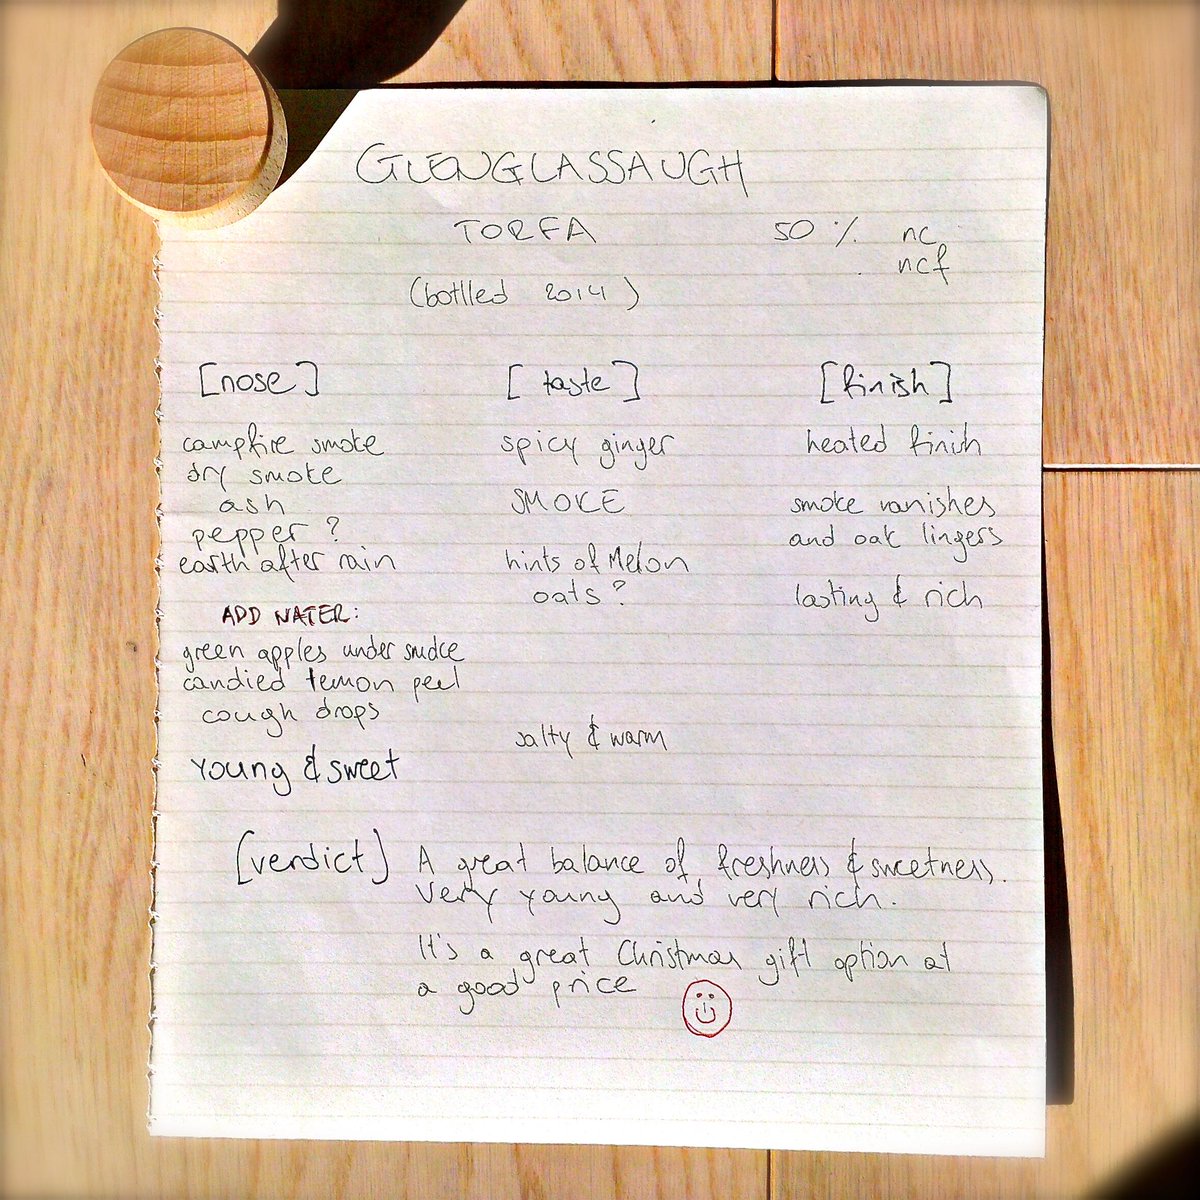 GLENGLASSAUGH
TORFA 50 % nc
ncf
(bottled 2014)
[nose]
campfire smoke
dry smoke
ash
pepper ?
earth after rain
ADD WATER:
green apples under smoke
candied lemon peel
cough drops
young & sweet
[taste]
spicy ginger
SMOKE
hints of Melon
oats ?
salty & warm
[finish]
heated finish
smoke vanishes
and oak lingers
lasting & rich
[verdict] A great balance of freshness & sweetness.
Very young and very rich.
It's a great Christmas gift option at
a good price